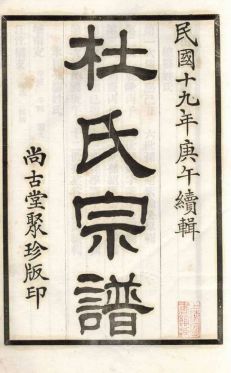 民國十九年庚午續輯
杜氏宗譜
尚古堂聚珍版印